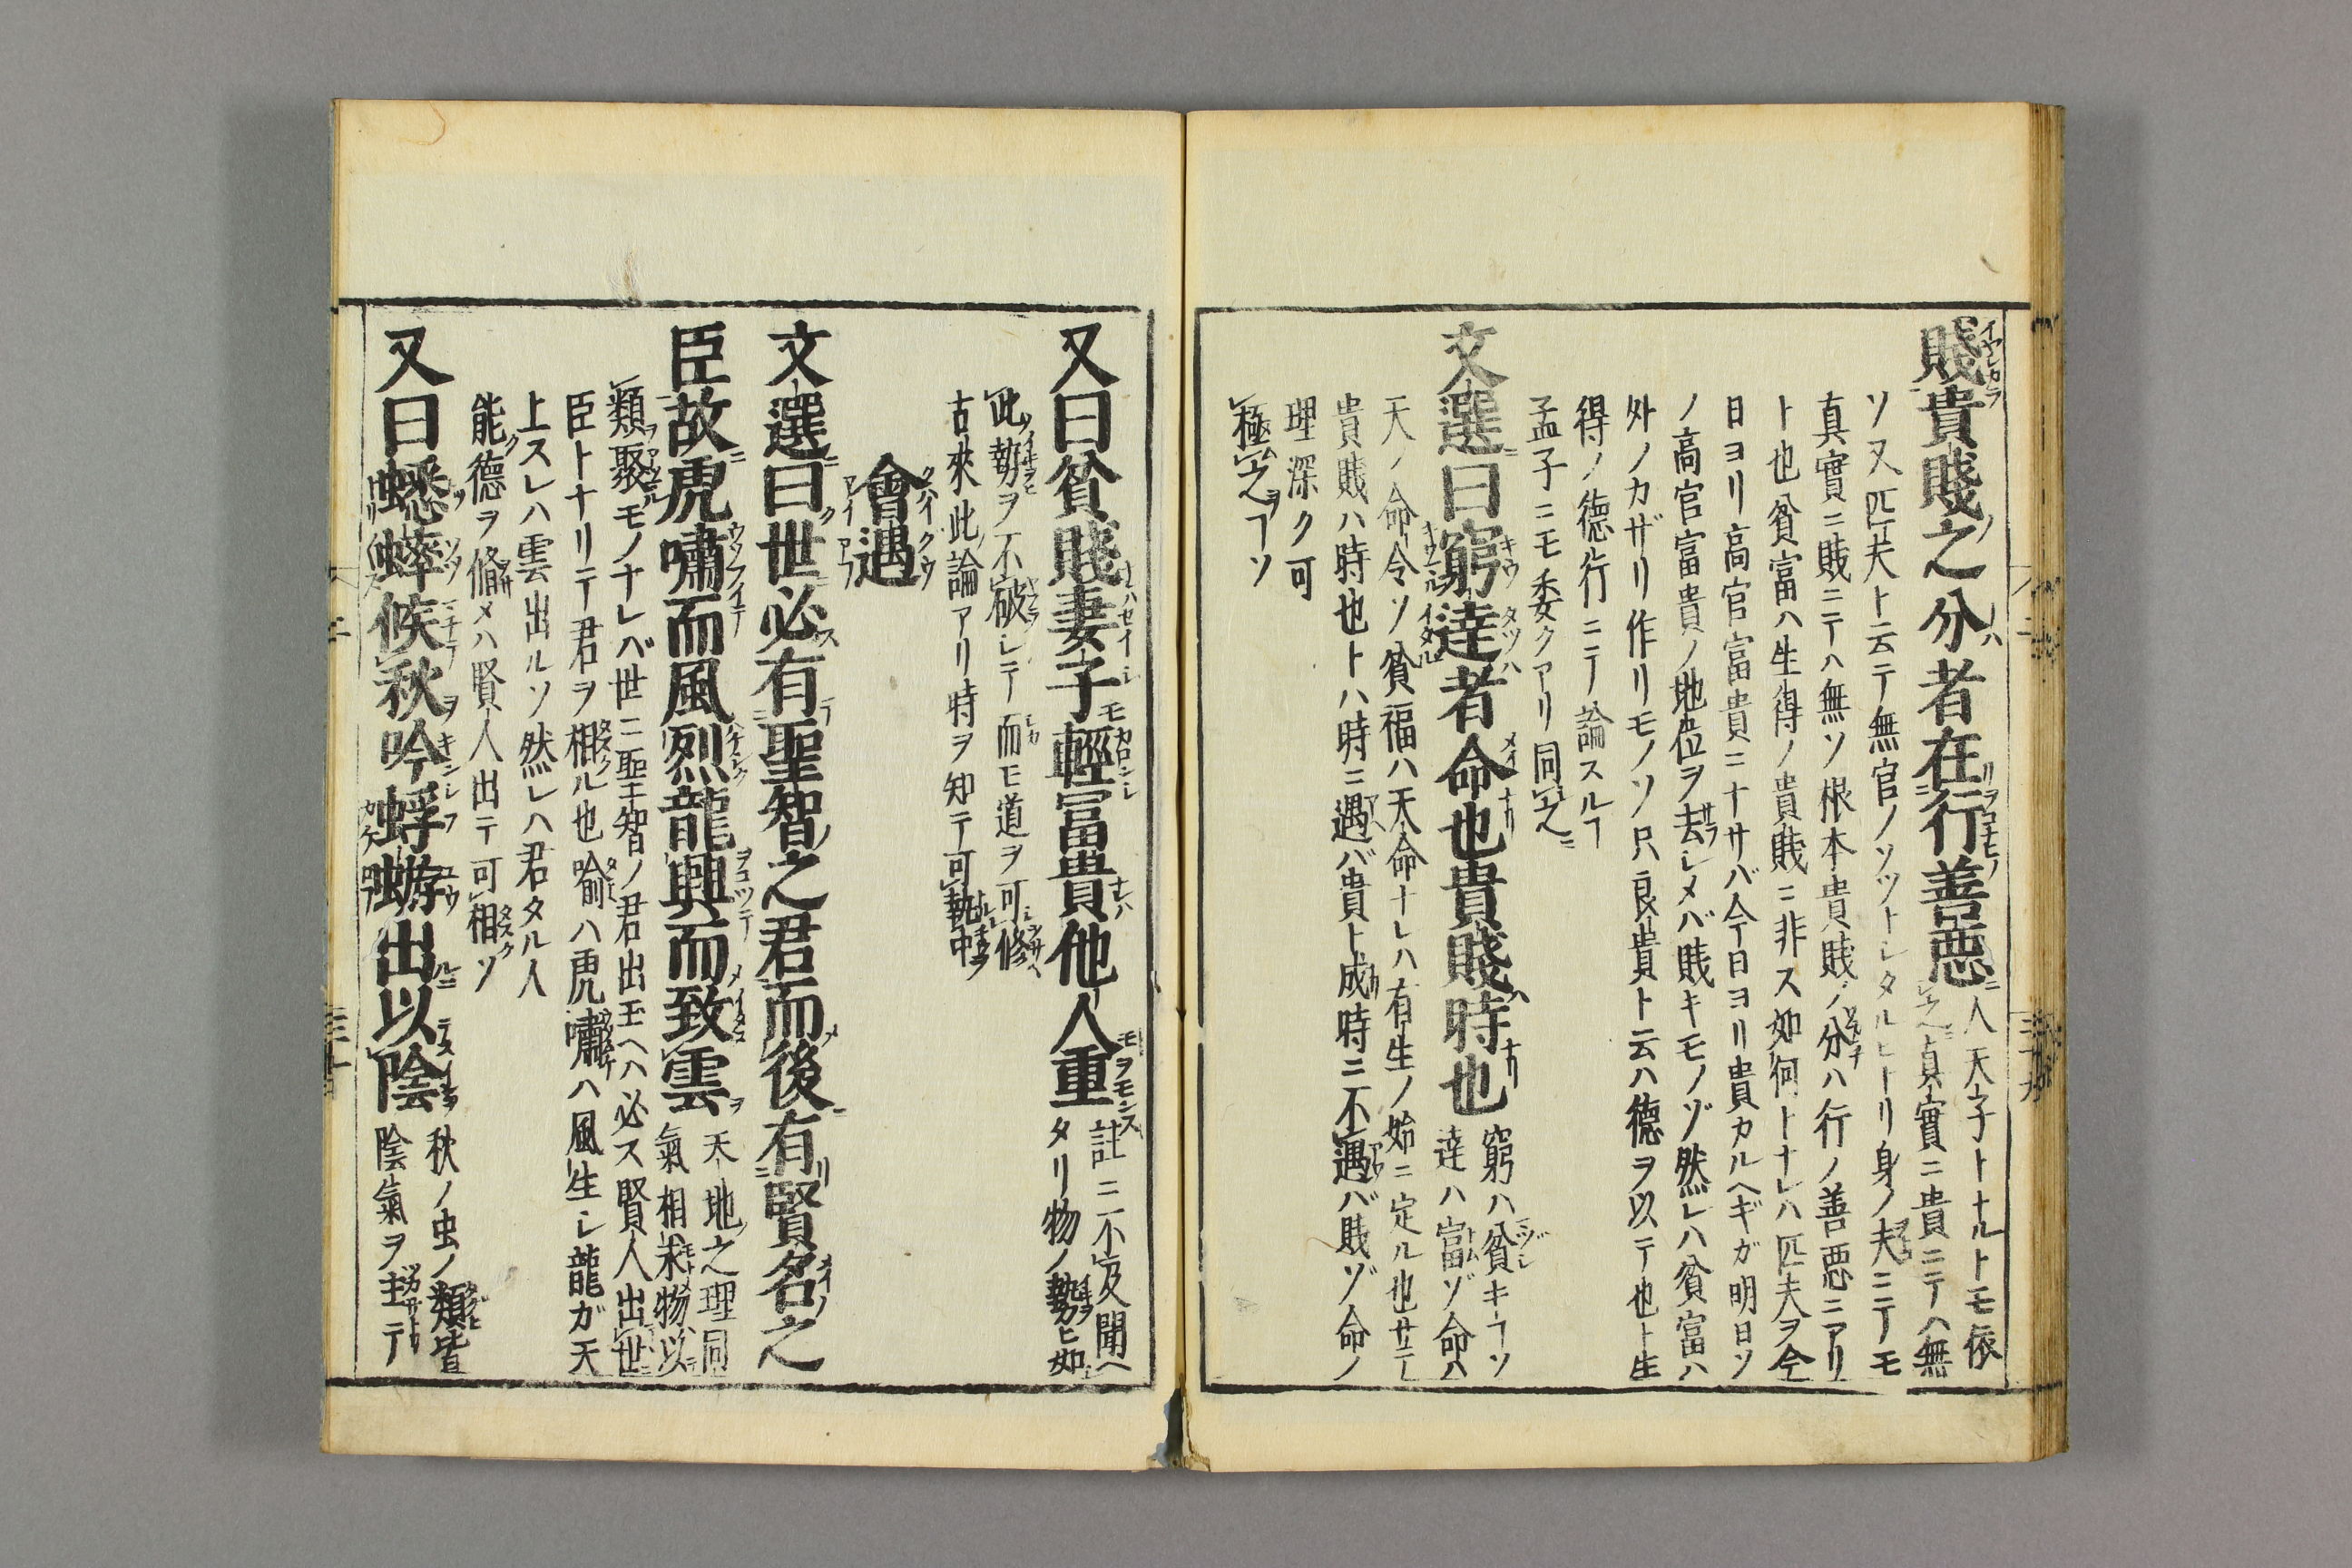 賤貴賤之分者在行善悪 人天子トナルトモ依
之貞實ニ貴ニテハ無
ソ又匹夫ト云テ無官ノソツトレタルヒトリ身ノ夫ニテモ
真實ニ賤ニテハ無ソ根本貴賤ノ分ハ行ノ善悪ニアリ
ト也貧富ハ生得ノ貴賤ニ非ス如何トナレハ匹夫ヲ今
日ヨリ高官富貴ニナサバ今日ヨリ貴カルヘギガ明日ソ
ノ高官富貴ノ地位ヲ去レメバ賤キモノゾ然レハ貧富ハ
外ノカザリ作リモノソ只良貴ト云ハ徳ヲ以テ也ト生
得ノ徳行ニテ論スルヿ
孟子ニモ委クアリ同之
文選曰窮達者命也貴賤時也 窮ハ貧キヿソ
達ハ富ゾ命ハ
天ノ命令ソ貧福ハ天命ナレハ有生ノ始ニ定ル也サテ
貴賤ハ時也トハ時ニ遇バ貴ト成時ニ不遇バ賤ゾ命ノ
理深ク可
極之ヿソ
又曰貧賤妻子輕富貴他人重 註ニ不及聞ヘ
タリ物ノ勢ヒ如
此勢ヲ不破レテ而モ道ヲ可修
古來此論アリ時ヲ知テ可執中
會遇
文選曰世必有聖智之君而後有賢名之
臣故虎嘯而風烈龍興而致雲 天地之理同
氣相求物以
類聚モノナレバ世ニ聖智ノ君出玉ヘハ必ス賢人出世
臣トナリテ君ヲ相ル也喩ハ虎嘯ハ風生レ龍ガ天
上スレハ雲出ルソ然レハ君タル人
能徳ヲ脩メハ賢人出テ可相ソ
又曰蟋蟀候秋吟蜉蝣出以陰 秋ノ虫ノ類皆
陰氣ヲ主テ